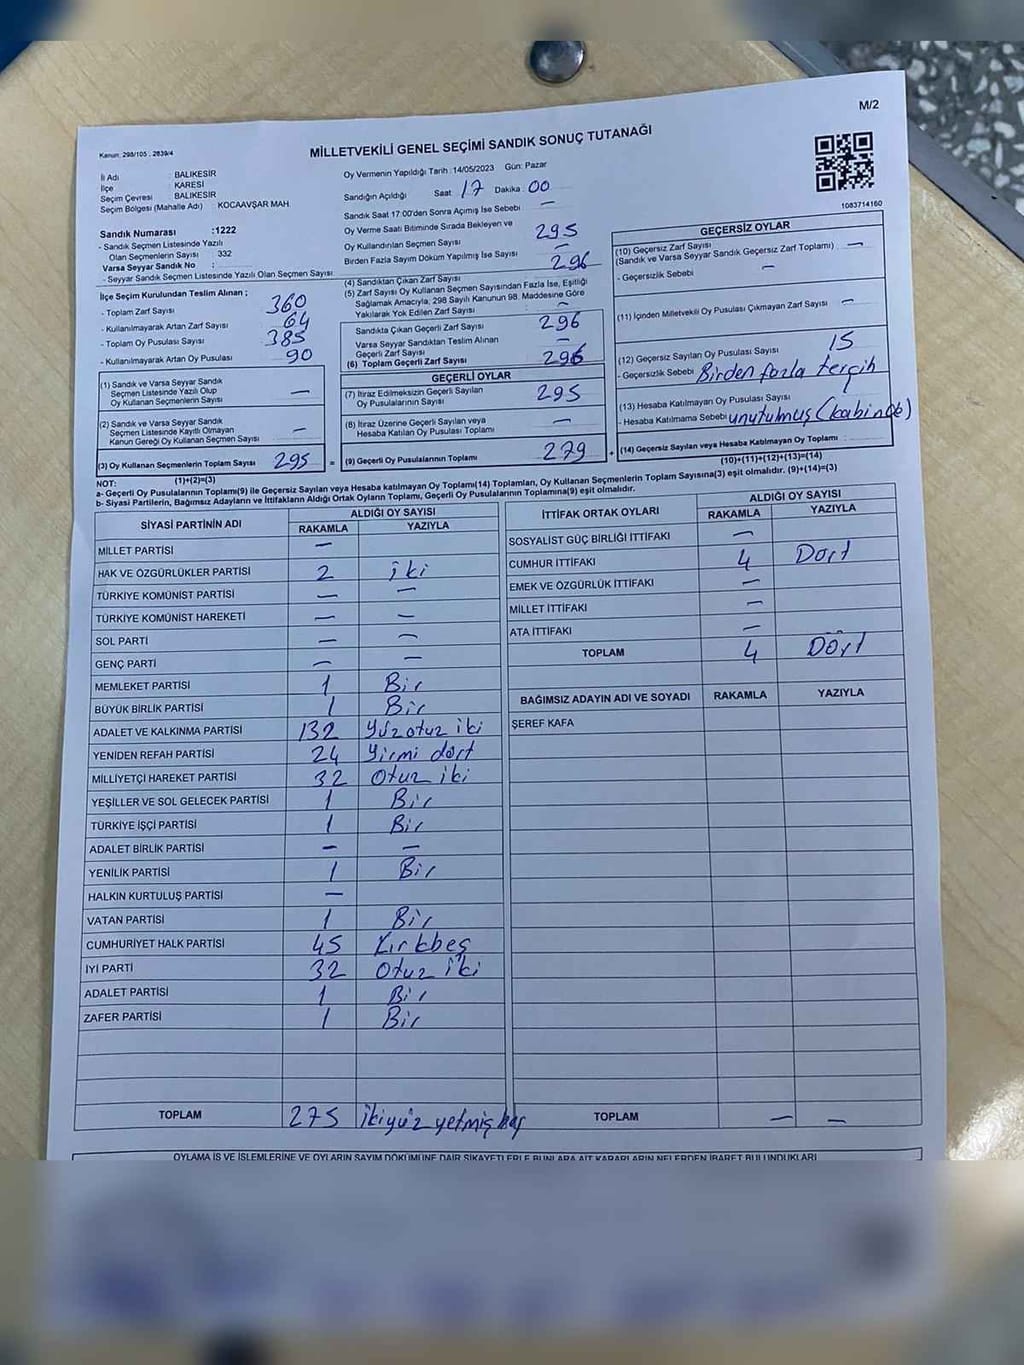 M/2
Kanun: 298/105 , 2839/4
MİLLETVEKİLİ GENEL SEÇİMİ SANDIK SONUÇ TUTANAĞI
1083714160
İl Adı : BALIKESİR
İlçe : KARESİ
Seçim Çevresi : BALIKESİR
Seçim Bölgesi (Mahalle Adı) : KOCAAVŞAR MAH.
Sandık Numarası :1222
- Sandık Seçmen Listesinde Yazılı
Olan Seçmenlerin Sayısı : 332
Varsa Seyyar Sandık No :
- Seyyar Sandık Seçmen Listesinde Yazılı Olan Seçmen Sayısı:
İlçe Seçim Kurulundan Teslim Alınan ;
- Toplam Zarf Sayısı : 360
- Kullanılmayarak Artan Zarf Sayısı : 64
- Toplam Oy Pusulası Sayısı : 385
- Kullanılmayarak Artan Oy Pusulası : 90
(1) Sandık ve Varsa Seyyar Sandık
Seçmen Listesinde Yazılı Olup
Oy Kullanan Seçmenlerin Sayısı : —
(2) Sandık ve Varsa Seyyar Sandık
Seçmen Listesinde Kayıtlı Olmayan
Kanun Gereği Oy Kullanan Seçmen Sayısı : —
(3) Oy Kullanan Seçmenlerin Toplam Sayısı : 295 =
(1)+(2)=(3)
Oy Vermenin Yapıldığı Tarih :14/05/2023 Gün: Pazar
Sandığın Açıldığı Saat 17 Dakika : 00
Sandık Saat 17:00'den Sonra Açımış İse Sebebi : —
Oy Verme Saati Bitiminde Sırada Bekleyen ve
Oy Kullandırılan Seçmen Sayısı : 295
Birden Fazla Sayım Döküm Yapılmış İse Sayısı : —
(4) Sandıktan Çıkan Zarf Sayısı : 296
(5) Zarf Sayısı Oy Kullanan Seçmen Sayısından Fazla İse, Eşitliği
Sağlamak Amacıyla; 298 Sayılı Kanunun 98. Maddesine Göre
Yakılarak Yok Edilen Zarf Sayısı : —
Sandıkta Çıkan Geçerli Zarf Sayısı : 296
Varsa Seyyar Sandıktan Teslim Alınan
Geçerli Zarf Sayısı : —
(6) Toplam Geçerli Zarf Sayısı : 296
GEÇERLİ OYLAR
(7) İtiraz Edilmeksizin Geçerli Sayılan
Oy Pusulalarının Sayısı : 295
(8) İtiraz Üzerine Geçerli Sayılan veya
Hesaba Katılan Oy Pusulası Toplamı : —
(9) Geçerli Oy Pusulalarının Toplamı : 279 +
GEÇERSİZ OYLAR
(10) Geçersiz Zarf Sayısı
(Sandık ve Varsa Seyyar Sandık Geçersiz Zarf Toplamı) : —
- Geçersizlik Sebebi : —
(11) İçinden Milletvekili Oy Pusulası Çıkmayan Zarf Sayısı : —
(12) Geçersiz Sayılan Oy Pusulası Sayısı : 15
- Geçersizlik Sebebi : Birden fazla tercih
(13) Hesaba Katılmayan Oy Pusulası Sayısı
- Hesaba Katılmama Sebebi : unutulmuş (kabinde)
(14) Geçersiz Sayılan veya Hesaba Katılmayan Oy Toplamı :
(10)+(11)+(12)+(13)=(14)
NOT:
a- Geçerli Oy Pusulalarının Toplamı(9) ile Geçersiz Sayılan veya Hesaba katılmayan Oy Toplamı(14) Toplamları, Oy Kullanan Seçmenlerin Toplam Sayısına(3) eşit olmalıdır. (9)+(14)=(3)
b- Siyasi Partilerin, Bağımsız Adayların ve İttifakların Aldığı Ortak Oyların Toplamı, Geçerli Oy Pusulalarının Toplamına(9) eşit olmalıdır.
SİYASİ PARTİNİN ADI ALDIĞI OY SAYISI
RAKAMLA YAZIYLA
MİLLET PARTİSİ —
HAK VE ÖZGÜRLÜKLER PARTİSİ 2 iki
TÜRKİYE KOMÜNİST PARTİSİ — —
TÜRKİYE KOMÜNİST HAREKETİ — —
SOL PARTİ — —
GENÇ PARTİ — —
MEMLEKET PARTİSİ 1 Bir
BÜYÜK BİRLİK PARTİSİ 1 Bir
ADALET VE KALKINMA PARTİSİ 132 Yüzotuz iki
YENİDEN REFAH PARTİSİ 24 Yirmi dört
MİLLİYETÇİ HAREKET PARTİSİ 32 Otuz iki
YEŞİLLER VE SOL GELECEK PARTİSİ 1 Bir
TÜRKİYE İŞÇİ PARTİSİ 1 Bir
ADALET BİRLİK PARTİSİ — —
YENİLİK PARTİSİ 1 Bir
HALKIN KURTULUŞ PARTİSİ —
VATAN PARTİSİ 1 Bir
CUMHURİYET HALK PARTİSİ 45 Kırkbeş
İYİ PARTİ 32 Otuz iki
ADALET PARTİSİ 1 Bir
ZAFER PARTİSİ 1 Bir
TOPLAM 275 İkiyüz yetmiş beş
İTTİFAK ORTAK OYLARI ALDIĞI OY SAYISI
RAKAMLA YAZIYLA
SOSYALİST GÜÇ BİRLİĞİ İTTİFAKI —
CUMHUR İTTİFAKI 4 Dört
EMEK VE ÖZGÜRLÜK İTTİFAKI —
MİLLET İTTİFAKI —
ATA İTTİFAKI —
TOPLAM 4 Dört
BAĞIMSIZ ADAYIN ADI VE SOYADI RAKAMLA YAZIYLA
ŞEREF KAFA
TOPLAM — —
OYLAMA İŞ VE İŞLEMLERİNE VE OYLARIN SAYIM DÖKÜMÜNE DAİR ŞİKAYETLERLE BUNLARA AİT KARARLARIN NELERDEN İBARET BULUNDUKLARI